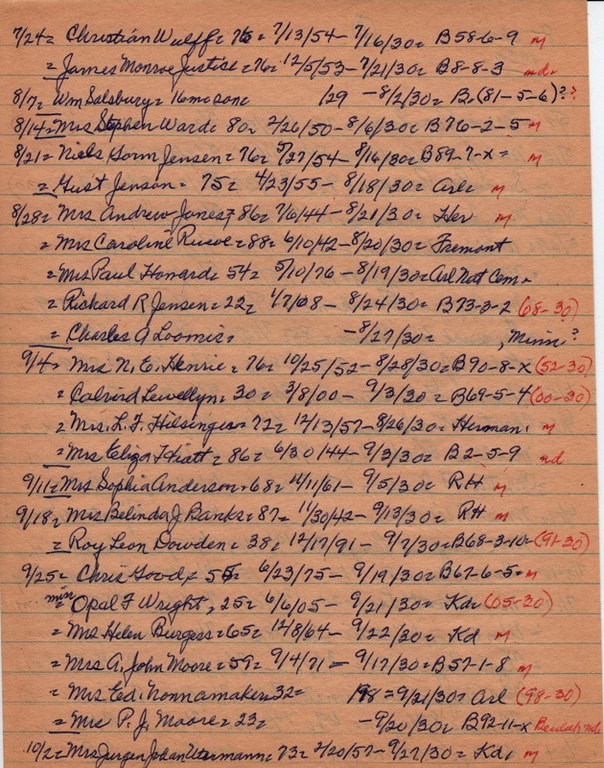 7/24= Christian Wulff= 76= 7/13/54– 7/16/30= B58-6-9 m
= James Monroe Justice= 76= 12/5/53– 7/21/30= B8-8-3 nd.
8/7= Wm Salsbury= 16mo son= 1/29 – 8/2/30= B.(81-5-6)??
8/14= Mrs Stephen Ward= 80= 2/26/50– 8/6/30= B76-2-5 m
8/21= Niels Gorm Jensen= 76= 5/27/54– 8/16/30= B89-7-x= m
= Gust Jenson= 75= 4/23/55– 8/18/30= Arl= m
8/28= Mrs Andrew Jones= 86= 7/6/44– 8/21/30= Her m
= Mrs Caroline Rusoe= 88= 6/10/42– 8/20/30= Fremont
= Mrs Paul Howard= 54= 5/10/76 – 8/19/30= Arl Nat Cem.
= Rickard R Jensen= 22= 1/7/08 – 8/24/30= B73-3-2 (08-30)
= Charles A Loomis= –8/27/30= , Minn?
9/4= Mrs N. E. Henrie= 76= 10/25/52– 8/28/30= B90-8-x (52-30)
= Calvird Lewellyn= 30= 3/8/00– 9/3/30= B69-5-4 (00-30)
= Mrs. L. F. Hilsinger= 72= 12/13/57– 8/26/30= Herman. m
= Mrs Eliza Hiatt= 86= 6/30/44– 9/3/30= B2-5-9 nd
9/11= Mrs Sophia Anderson= 68= 11/11/61– 9/5/30= RH m
9/18= Mrs Belinda J Banks= 87= 11/30/42– 9/13/30= RH m
= Roy Leon Dowden= 38= 12/17/91– 9/7/30= B68-3-10= (91-30)
9/25= Chris Good= 55= 6/23/75– 9/19/30= B67-6-5= m
min= Opal F Wright, 25= 6/6/05– 9/21/30= Kd= (05-30)
= Mrs Helen Burgess= 65= 12/8/64– 9/22/30= Kd m
= Mrs A. John Moore= 59= 9/4/71 – 9/17/30= B57-1-8 m
= Mrs Ed. Nonnamaker= 32= 198= 9/21/30= Arl (98-30)
= Mrs P. J. Moore= 23= –9/20/30= B92-11-x Beulah
10/2= Mrs Jurgen Johan Utermann= 73= 2/20/57– 9/27/30= Kd, m